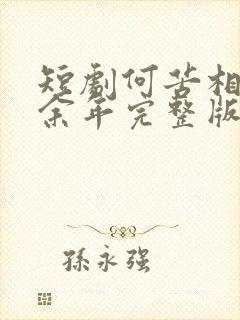 短劇何苦相
余年完整版
孫永强